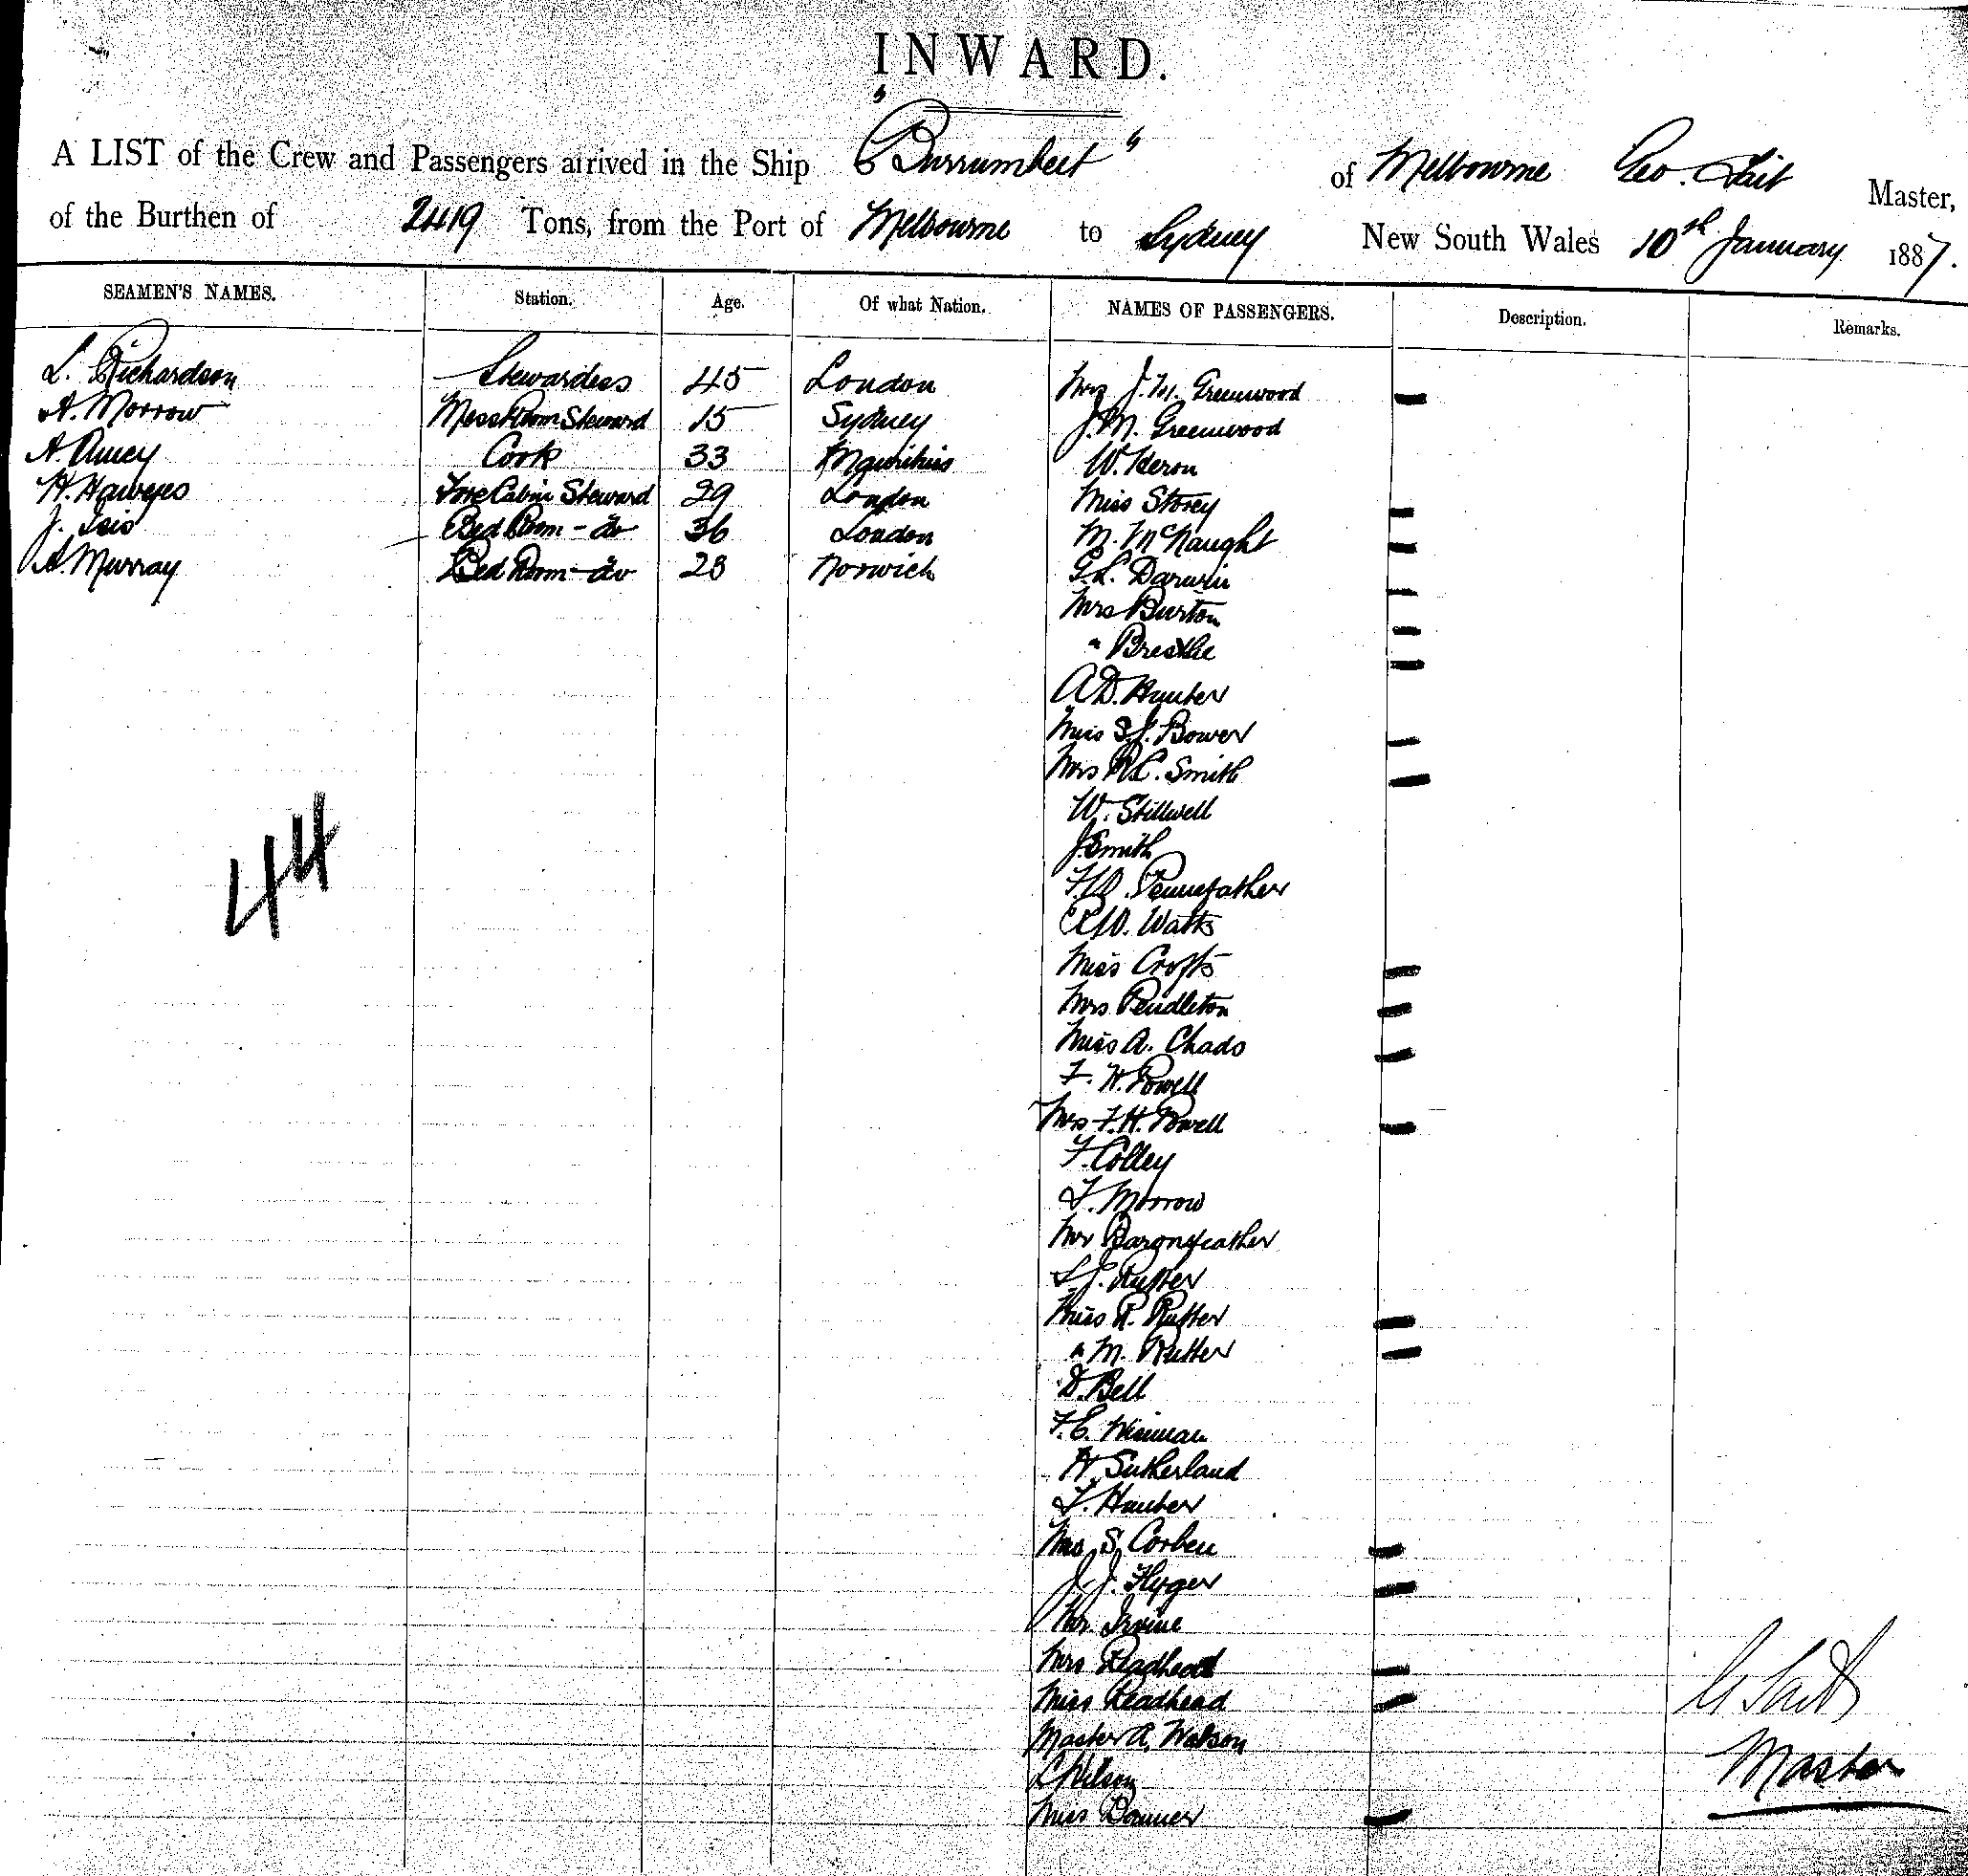 INWARD.
A LIST of the Crew and Passengers arrived in the Ship "Burrumbeet" of Melbourne Geo. Tait Master,
of the Burthen of 2419 Tons, from the Port of Melbourne to Sydney New South Wales 10th January 1887.
SEAMEN'S NAMES. Station. Age. Of what Nation. NAMES OF PASSENGERS. Description. Remarks.
L. Richardson Stewardess 45 London Mrs J. M. Greenwood
A. Morrow Mess Room Steward 15 Sydney J. M. Greenwood
A. Cook 33 Mauritius W. Heron
H. Haweyes Fore Cabin Steward 29 London Miss Storey
J. Bed Room - do 36 London M. McNaught
A. Murray Bed Room - do 28 Norwich G. L. Darwin
Mrs Burton
"
A D. Hunter
Miss S. J. Bower
Mrs R C. Smith
W. Stillwell
J. Smith
44
Pennefather
W. Watts
Miss Crofts
Mrs Pendleton
Miss A. Chads
F. H. Powell
Mrs F. H. Powell
F. Colley
T. Morrow
Mr
S J. Rutter
Miss R. Rutter
" M. Rutter
D. Bell
F. E.
H. Sutherland
T. Hunter
Mrs S. Corben
J. J.
Mr. Irvine
Mrs Readhead
Miss Readhead
Master A. Watson
Miss
G Tait
Master